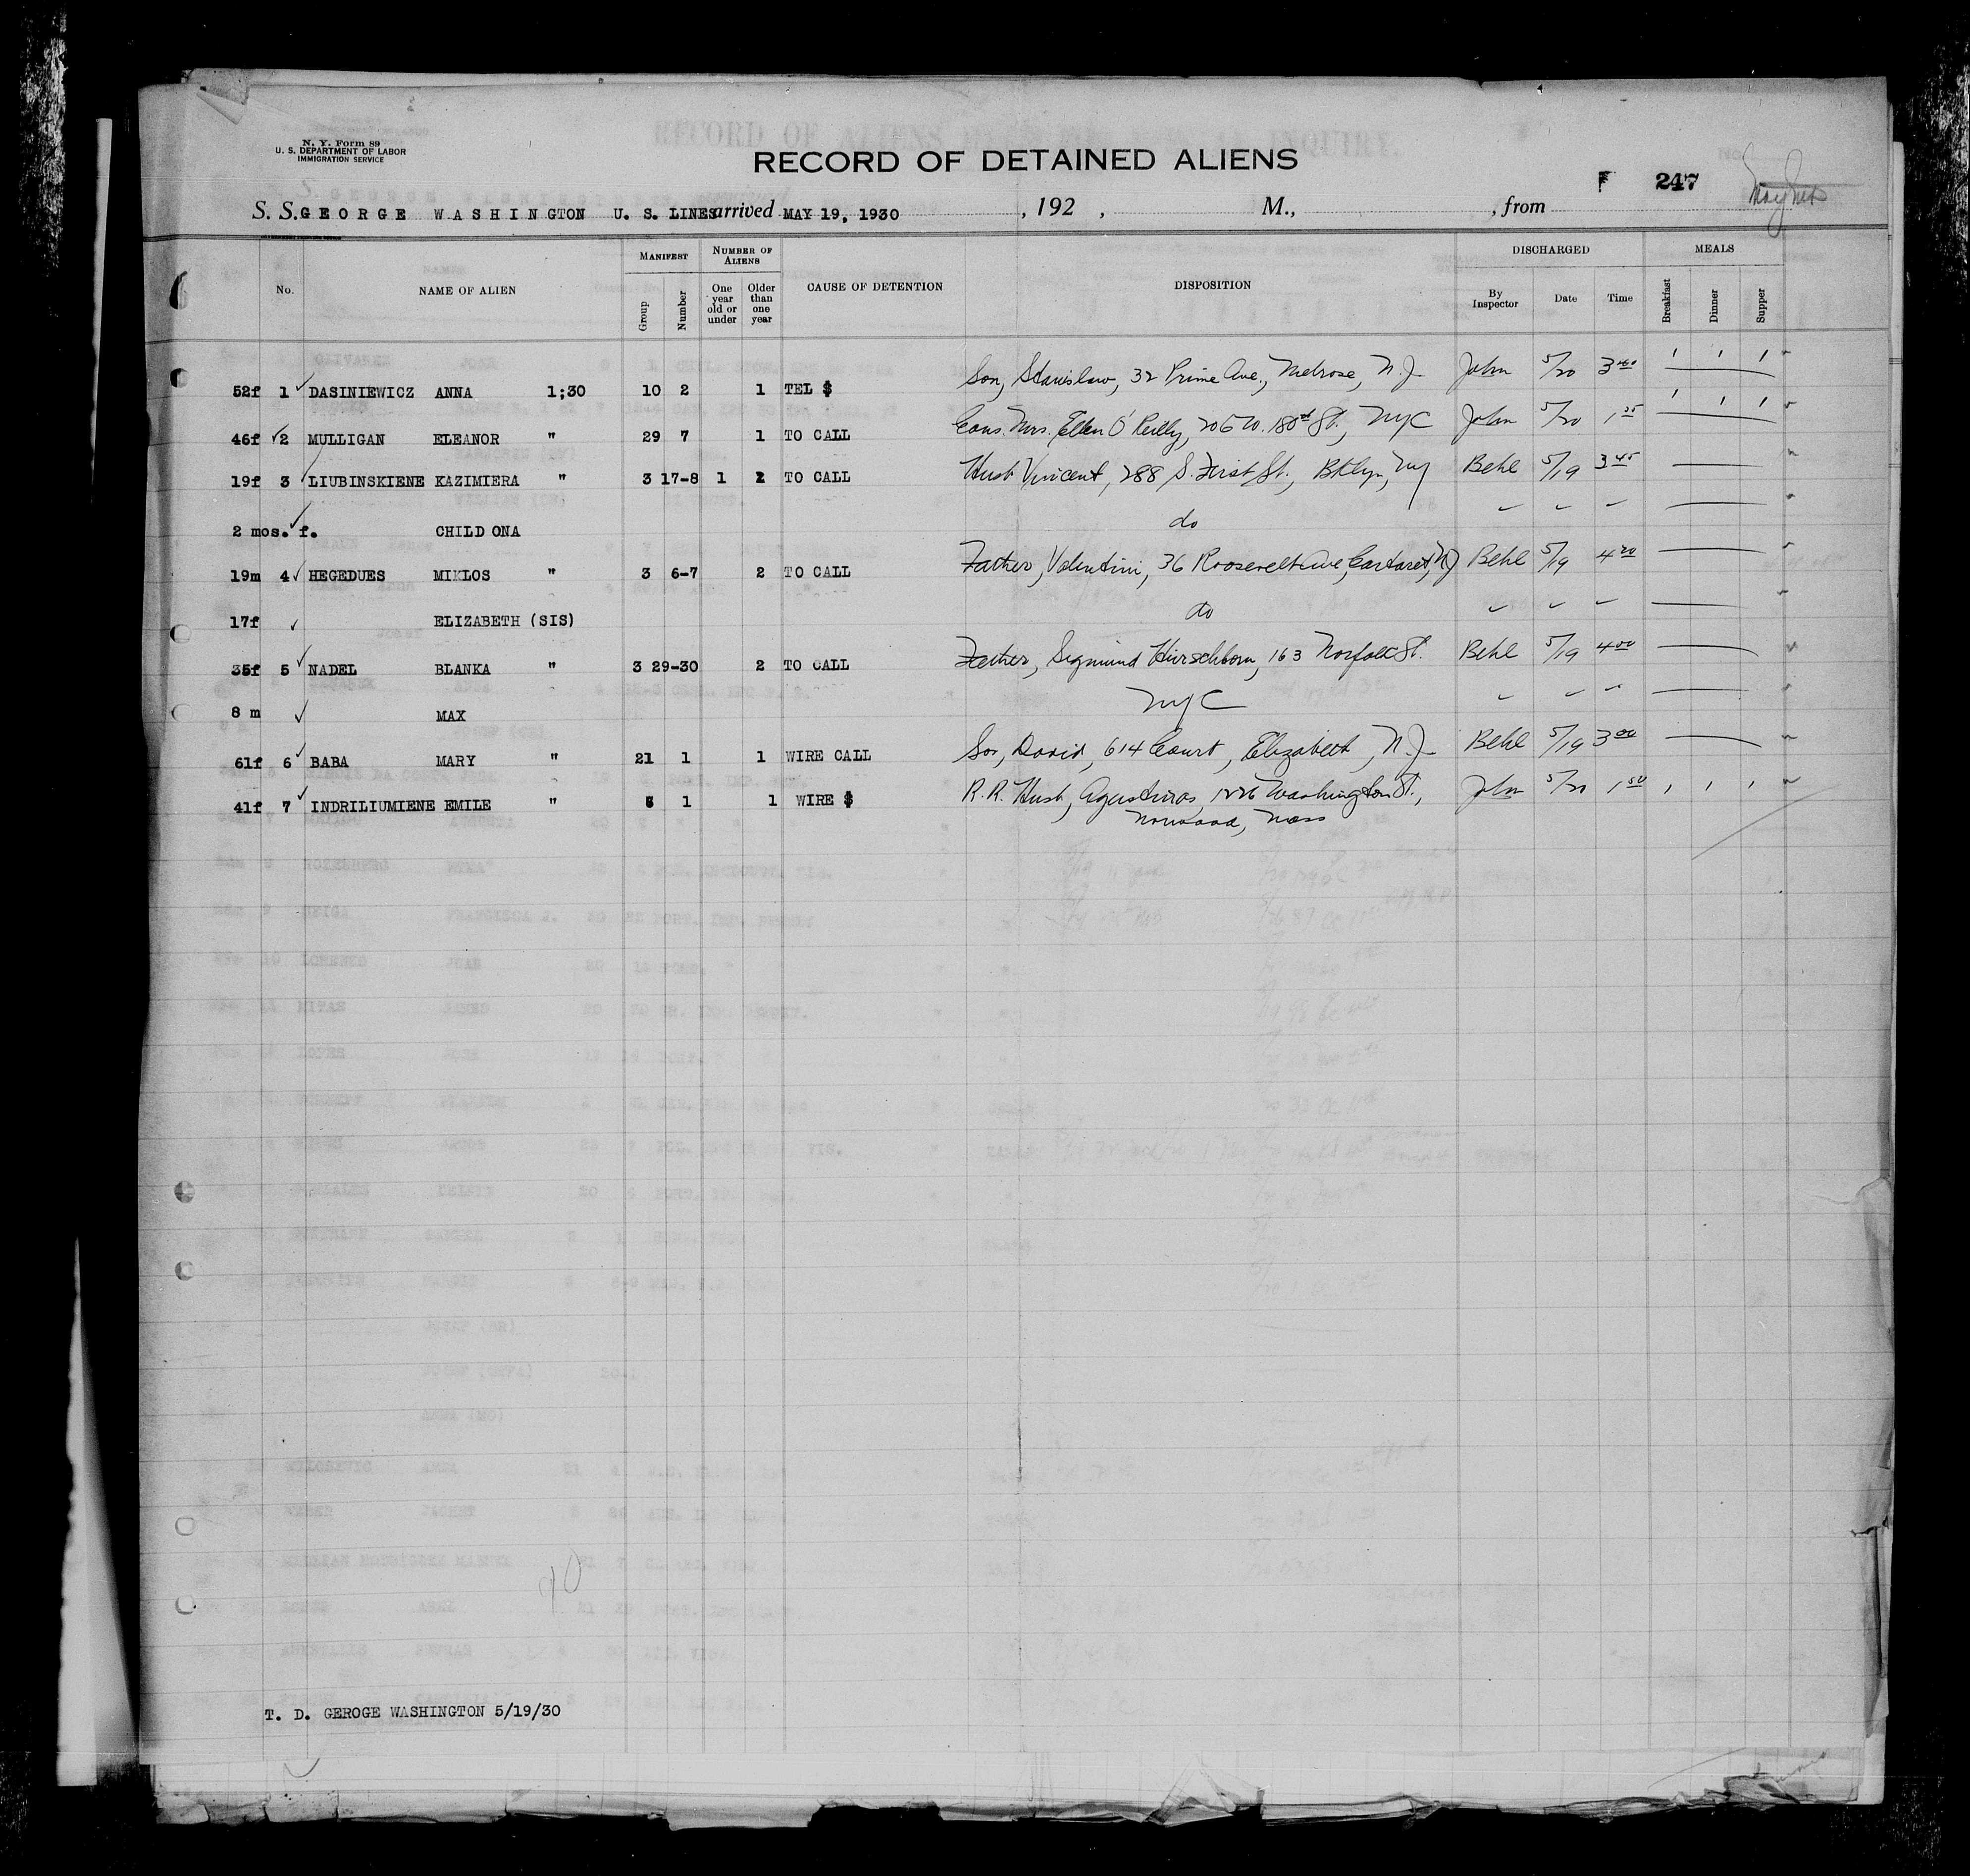 N. Y. Form 89
U. S. DEPARTMENT OF LABOR
IMMIGRATION SERVICE
RECORD OF DETAINED ALIENS
247
S. S. GEORGE WASHINGTON U. S. LINES arrived MAY 19, 1930 , 192 , M., , from
No. NAME OF ALIEN MANIFEST NUMBER OF ALIENS CAUSE OF DETENTION DISPOSITION DISCHARGED MEALS
Group Number One year old or under Older than one year By Inspector Date Time Breakfast Dinner Supper
52f 1 DASINIEWICZ ANNA 1;30 10 2 1 TEL $ Son, Stanislaw, 32 Prime Ave., Melrose, N.J. John 5/20 3 40 1 1 1
46f 2 MULLIGAN ELEANOR " 29 7 1 TO CALL Cous. Mrs. Ellen O'Reilly, 206 W. 180th St., NYC John 5/20 1 35 1 1 1
19f 3 LIUBINSKIENE KAZIMIERA " 3 17-8 1 2 TO CALL Husb Vincent, 288 S. First St., Bklyn, NY Behl 5/19 3 45 —
2 mos. f. CHILD ONA do
19m 4 HEGEDUES MIKLOS " 3 6-7 2 TO CALL Father, Valentini, 36 Roosevelt Ave, Carteret, NJ Behl 5/19 4 20 —
17f ELIZABETH (SIS) do
35f 5 NADEL BLANKA " 3 29-30 2 TO CALL Father, Sigmund Hirschhorn, 163 Norfolk St. Behl 5/19 4 00 —
8 m MAX NYC
61f 6 BABA MARY " 21 1 1 WIRE CALL Son, David, 614 Court, Elizabeth, N.J. Behl 5/19 3 00 —
41f 7 INDRILIUMIENE EMILE " 5 1 1 WIRE $ R.R. Husb, Agustinas, 1226 Washington St., John 5/20 1 50 1 1 1
Norwood, Mass
40
T. D. GEROGE WASHINGTON 5/19/30